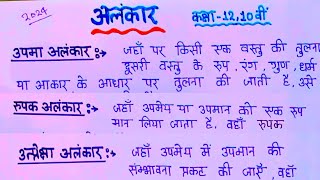 2024
अलंकार
कक्षा-12,10वीं
उपमा अलंकार :→ जहाँ पर किसी एक वस्तु की तुलना
दूसरी वस्तु के रूप, रंग, गुण, धर्म
या आकार के आधार पर तुलना की जाती है, उसे
रूपक अलंकार :→ जहाँ उपमेय या उपमान की एक रूप
मान लिया जाता है, वहाँ रूपक
उत्प्रेक्षा अलंकार :→ जहाँ उपमेय में उपमान की
सम्भावना प्रकट की जाएँ, वहाँ